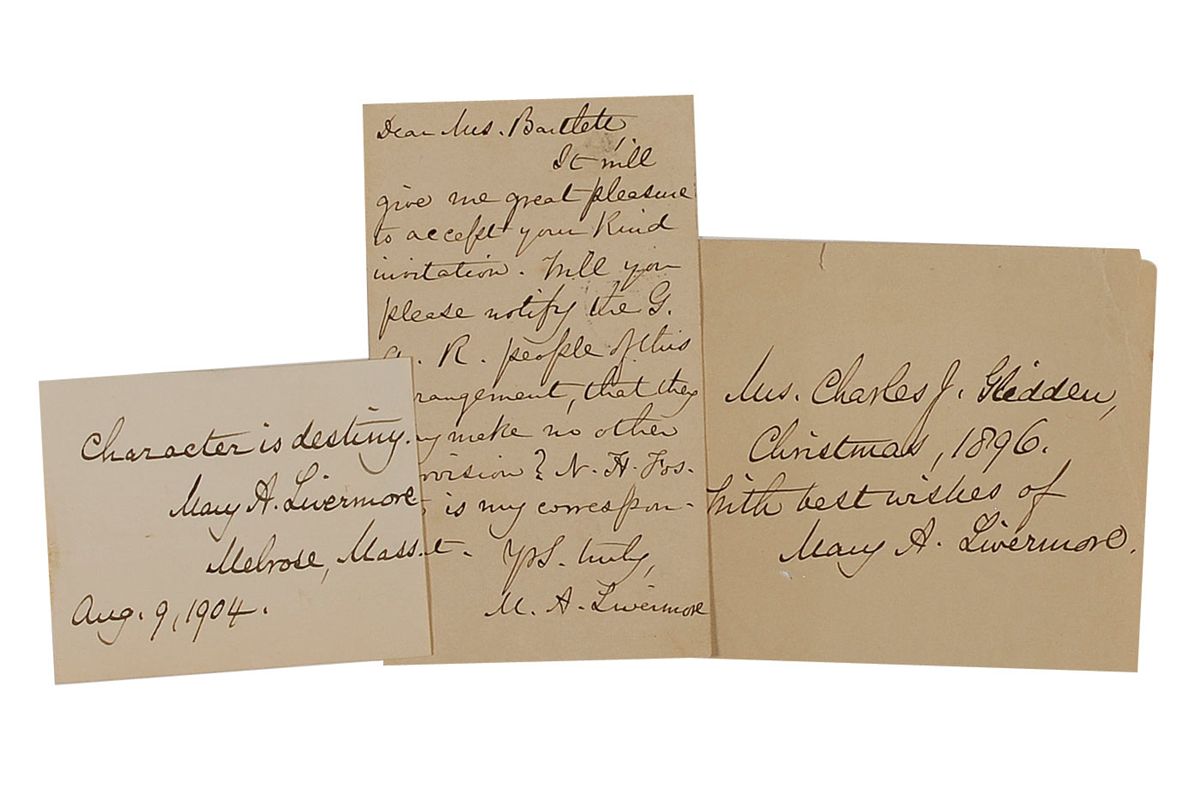 Character is destiny.
Mary A. Livermore
Melrose, Mass.
Aug. 9, 1904.
Dear Mrs. Bartlett,
It will
give me great pleasure
to accept your kind
invitation. Will you
please notify the G.
A. R. people of this
rangement, that they
make no other
ovision? N. H. Fos-
is my correspon-
t.
Yrs. truly,
M. A. Livermore
Mrs. Charles J. Glidden,
Christmas, 1896.
With best wishes of
Mary A. Livermore.